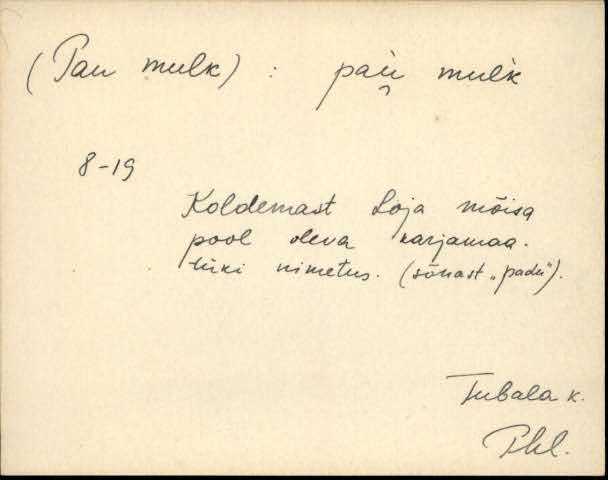 (Pau mulk) : pau̯ mulk
8-19
Koldemast Loja mõisa
pool oleva karjamaa-
tüki nimetus. (sõnast „padu").
Tubala k.
Phl.